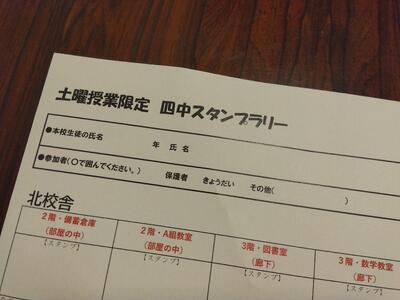 土曜授業限定 四中スタンプラリー
●本校生徒の氏名 年 氏名
●参加者(〇で囲んでください。) 保護者 きょうだい その他( )
北校舎
2階・備蓄倉庫 2階・A組教室 3階・図書室 3階・数学教室
(部屋の中) (部屋の中) (廊下) (廊下)
【スタンプ】 【スタンプ】 【スタンプ】 【スタンプ】